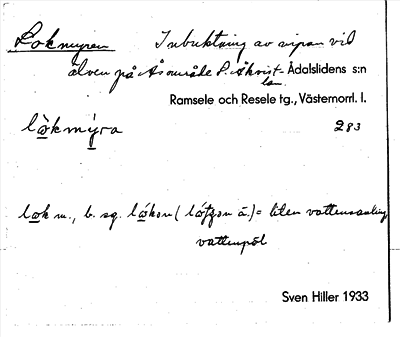 Lokmyren Inbuktning av nipan vid
älven på Åsområde P. Åkrist- Ådalslidens s:n
lan.
Ramsele och Resele tg., Västernorrl. l.
lòkmýra 283
lok m., b. sg. lókən ( ä.) = liten vattensamling
vattenpöl
Sven Hiller 1933